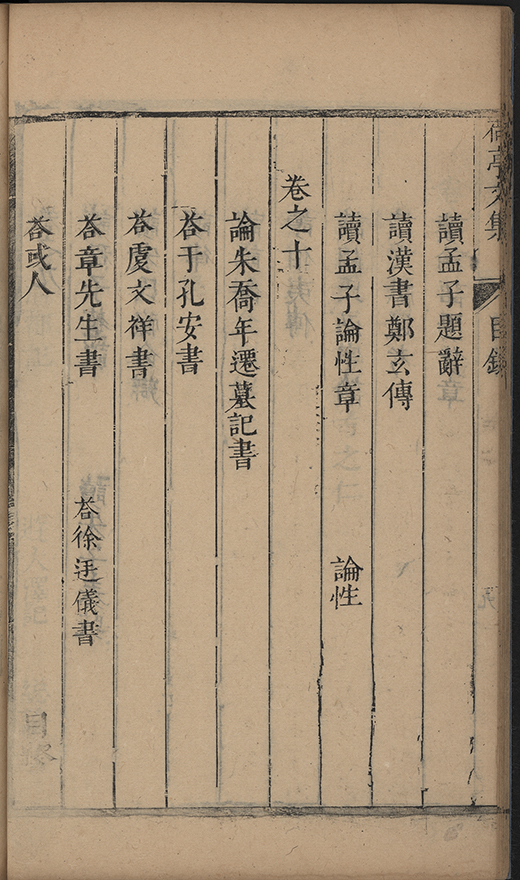 亭文集
目錄
讀孟子題辭
讀漢書鄭玄傳
讀孟子論性章 論性
卷之十
論朱喬年遷墓記書
荅于孔安書
荅虞文祥書
荅章先生書 荅徐廷儀書
荅或人